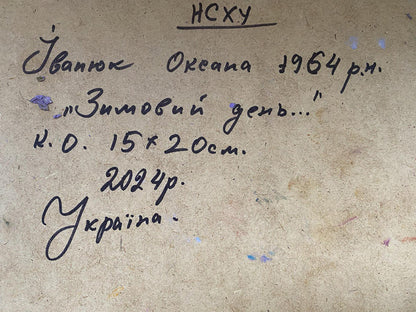 НСХУ
Іванюк Оксана 1964 р.н.
„Зимовий день..."
К.О. 15×20см.
2024р.
Україна.